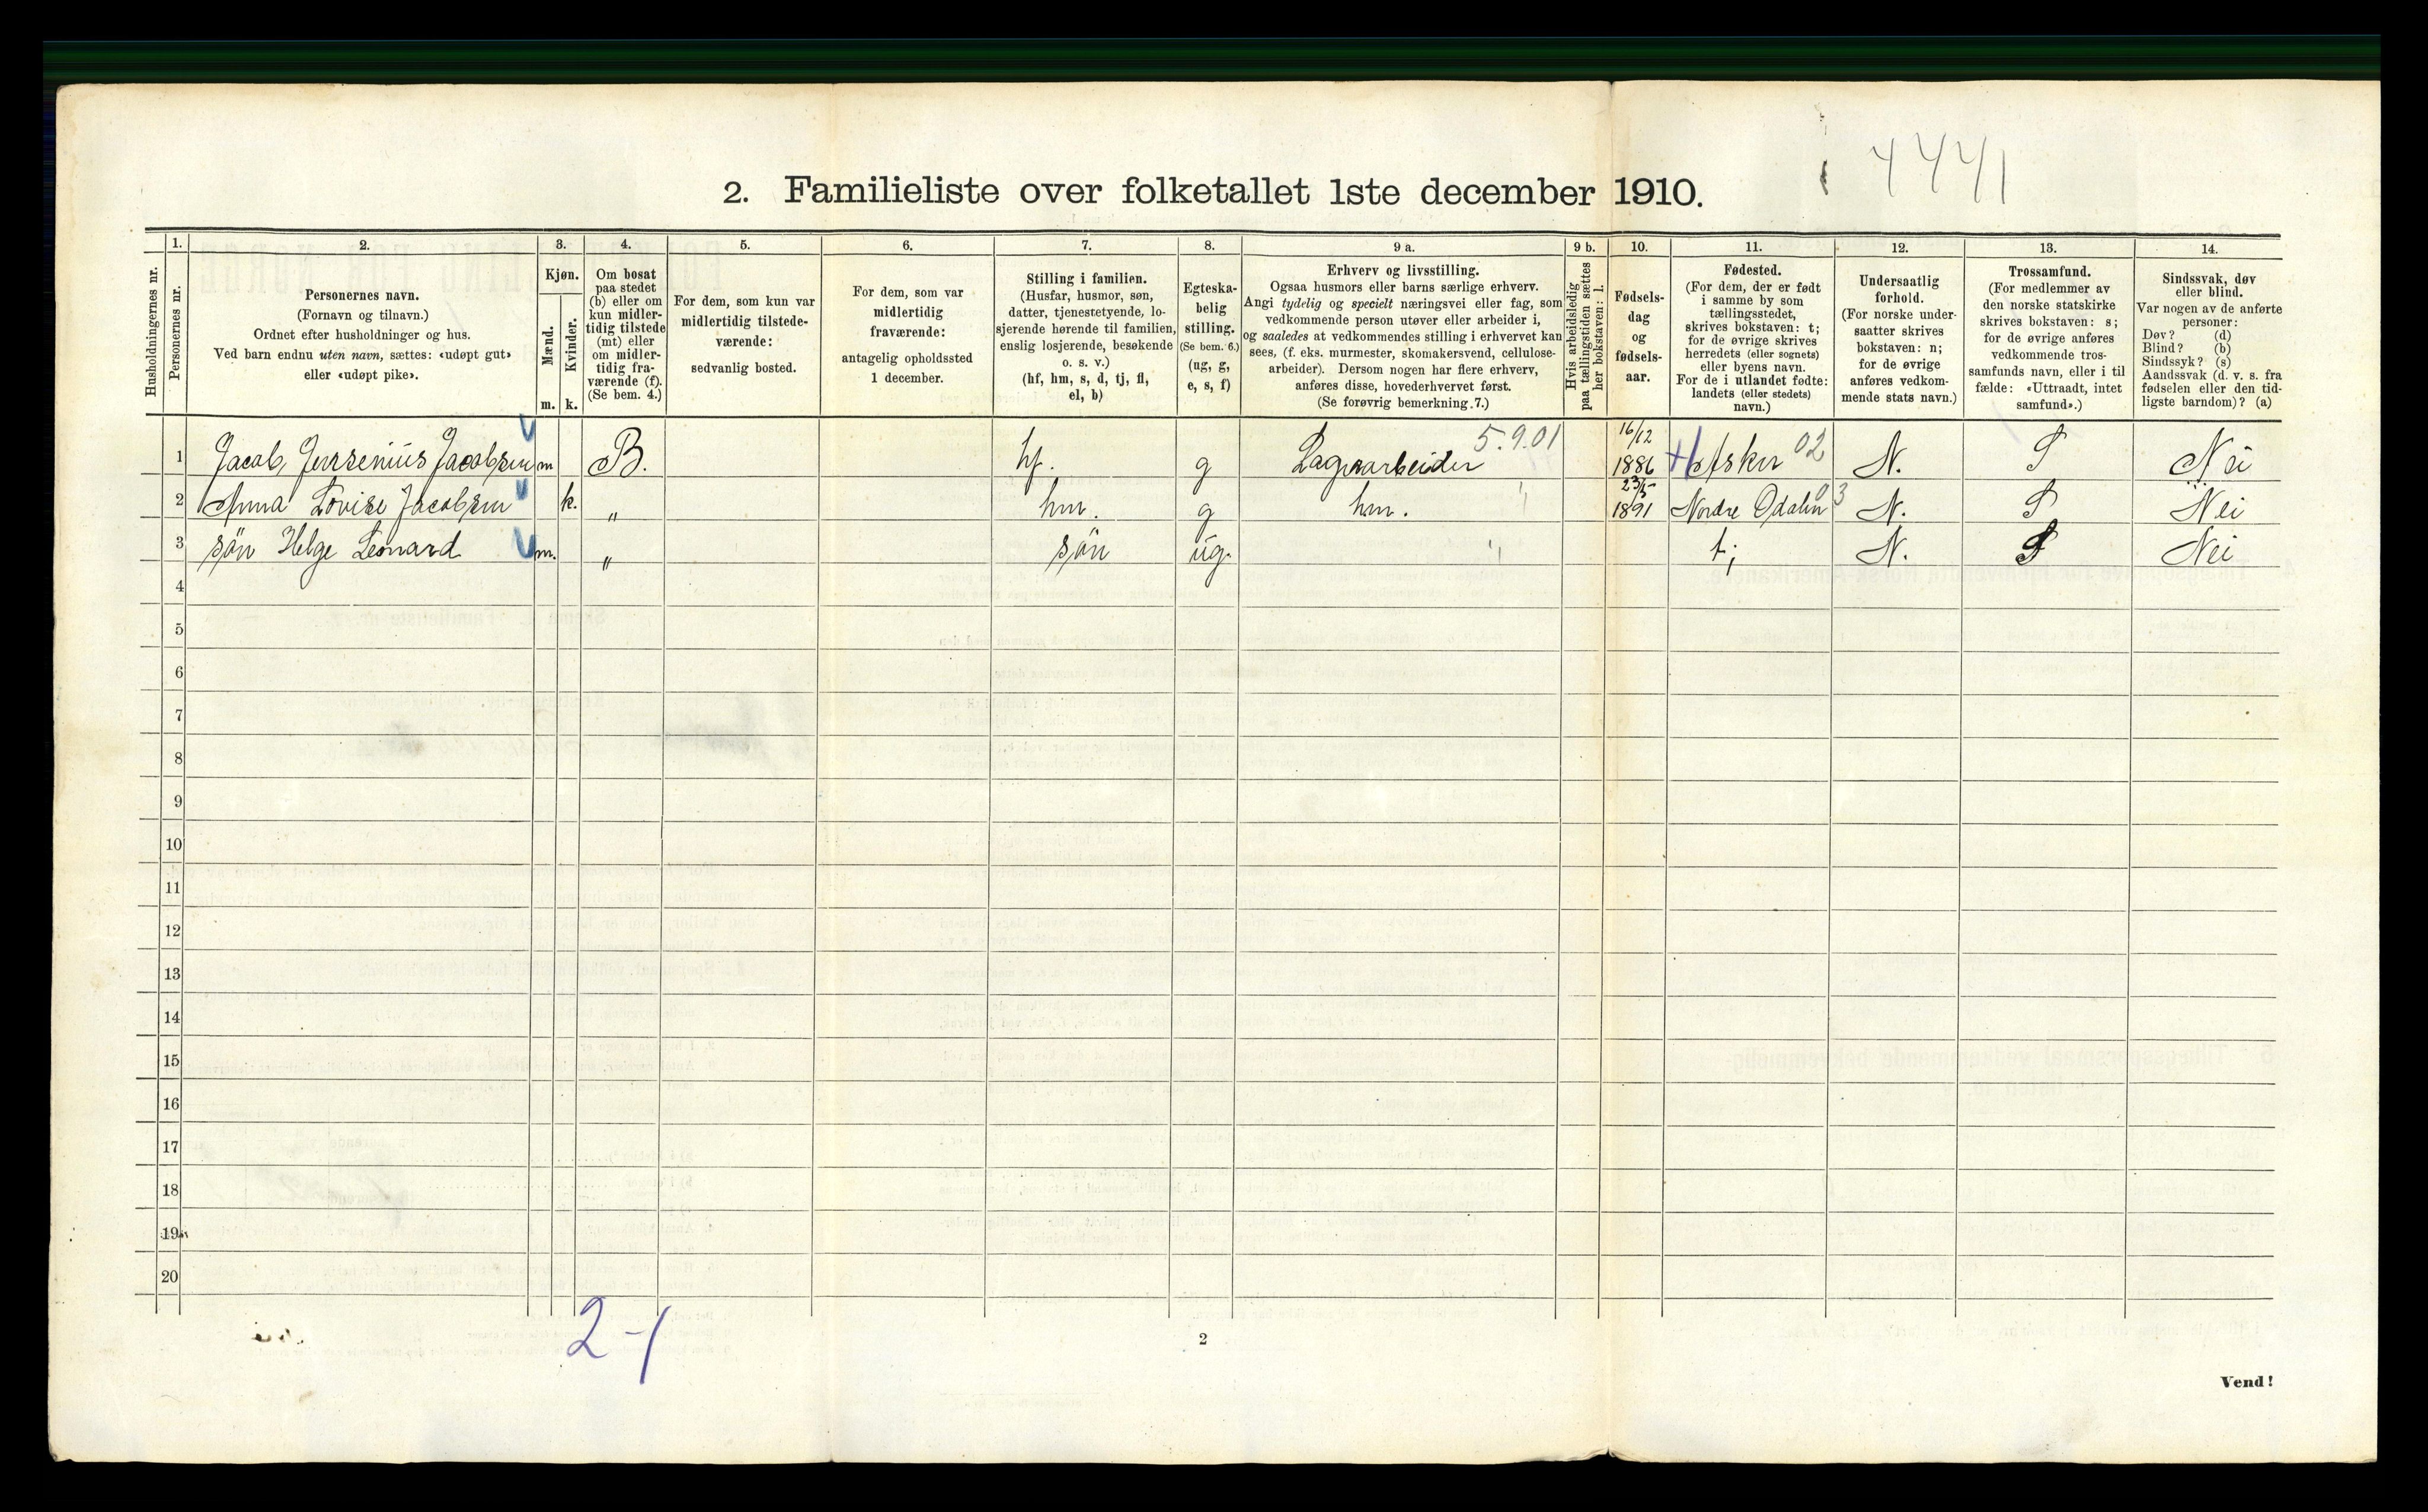 4441
2. Familieliste over folketallet 1ste december 1910.
1. 2. 3. 4. 5. 6. 7. 8. 9 a. 9 b. 10. 11. 12. 13. 14.
Husholdningernes nr.
Personernes nr.
Personernes navn.
(Fornavn og tilnavn.)
Ordnet efter husholdninger og hus.
Ved barn endnu uten navn, sættes: «udøpt gut»
eller «udøpt pike».
Kjøn.
Mænd.
Kvinder.
m. k.
Om bosat
paa stedet
(b) eller om
kun midler-
tidig tilstede
(mt) eller
om midler-
tidig fra-
værende (f).
(Se bem. 4.)
For dem, som kun var
midlertidig tilstede-
værende:
sedvanlig bosted.
For dem, som var
midlertidig
fraværende:
antagelig opholdssted
1 december.
Stilling i familien.
(Husfar, husmor, søn,
datter, tjenestetyende, lo-
sjerende hørende til familien,
enslig losjerende, besøkende
o. s. v.)
(hf, hm, s, d, tj, fl,
el, b)
Egteska-
belig
stilling.
(Se bem. 6.)
(ug, g,
e, s, f)
Erhverv og livsstilling.
Ogsaa husmors eller barns særlige erhverv.
Angi tydelig og specielt næringsvei eller fag, som
vedkommende person utøver eller arbeider i,
og saaledes at vedkommendes stilling i erhvervet kan
sees, (f. eks. murmester, skomakersvend, cellulose-
arbeider). Dersom nogen har flere erhverv,
anføres disse, hovederhvervet først.
(Se forøvrig bemerkning 7.)
Hvis arbeidsledig
paa tællingstiden sættes
her bokstaven: l.
Fødsels-
dag
og
fødsels-
aar.
Fødested.
(For dem, der er født
i samme by som
tællingsstedet,
skrives bokstaven: t;
for de øvrige skrives
herredets (eller sognets)
eller byens navn.
For de i utlandet fødte:
landets (eller stedets)
navn.)
Undersaatlig
forhold.
(For norske under-
saatter skrives
bokstaven: n;
for de øvrige
anføres vedkom-
mende stats navn.)
Trossamfund.
(For medlemmer av
den norske statskirke
skrives bokstaven: s;
for de øvrige anføres
vedkommende tros-
samfunds navn, eller i til
fælde: «Uttraadt, intet
samfund».)
Sindssvak, døv
eller blind.
Var nogen av de anførte
personer:
Døv? (d)
Blind? (b)
Sindssyk? (s)
Aandssvak (d. v. s. fra
fødselen eller den tid-
ligste barndom)? (a)
5.9.01 16/12 02
1 Jacob Jacobsen m B. hf. g Lagerarbeider 1886 Asker N. S Nei
2 Anna Lovise Jacobsen k. „ hm. g hm. 23/5 1891 Nordre Odalen 03 N. S Nei
3 søn Helge Leonard m. „ søn ug. t; N. S Nei
4
5
6
7
8
9
10
11
12
13
14
15
16
17
18
19
20
2-1
2
Vend!